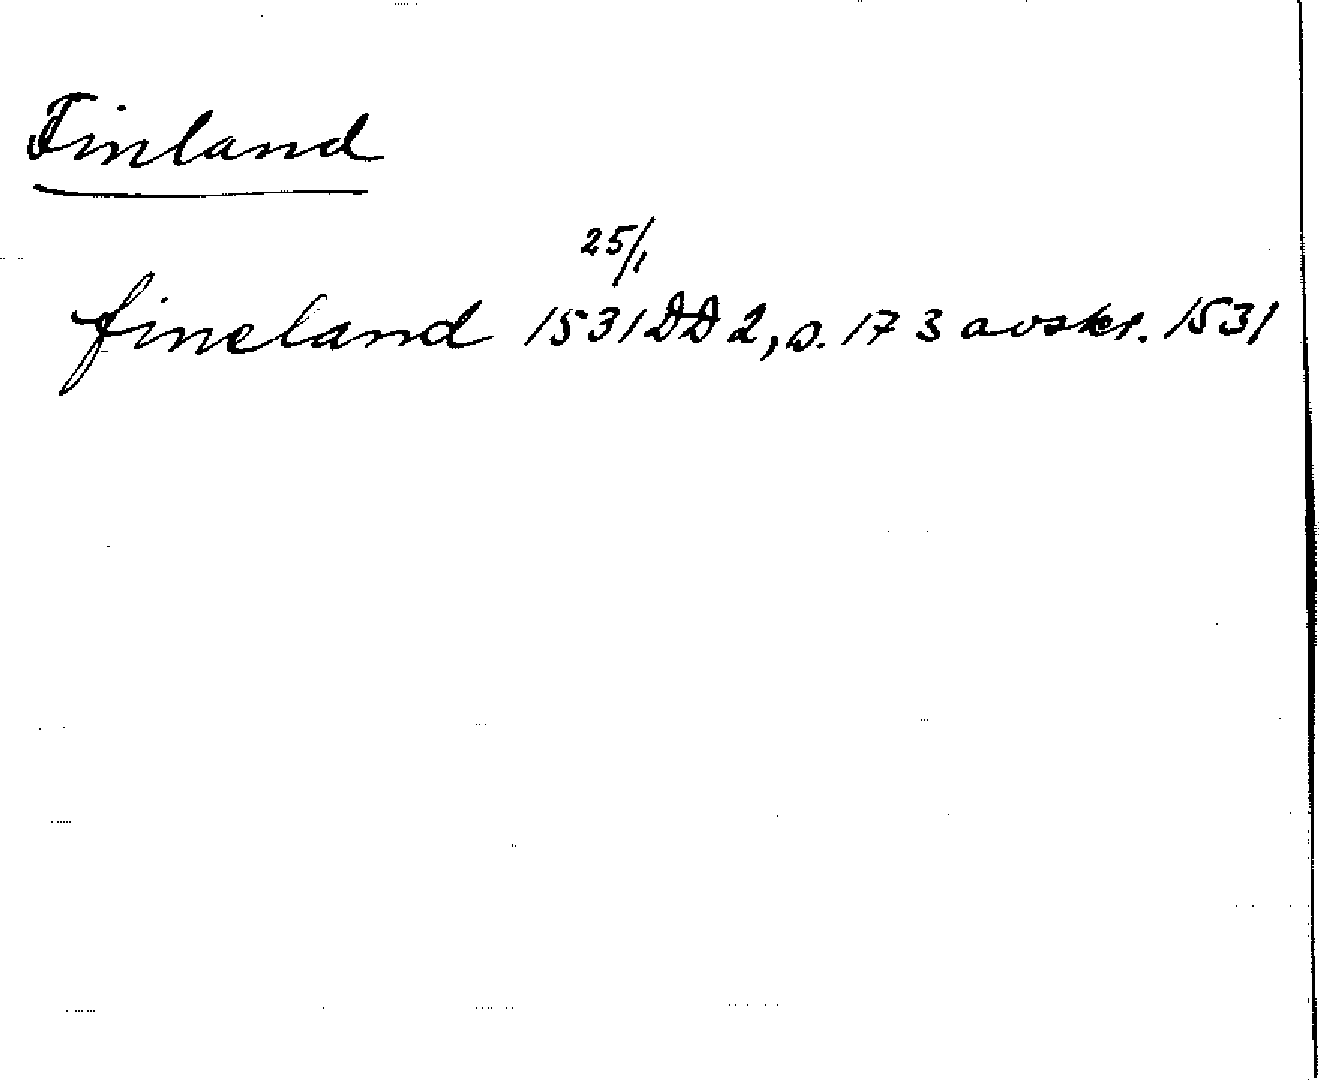 Finland
25/1
fineland 1531 DD 2, s. 173 avskr. 1531